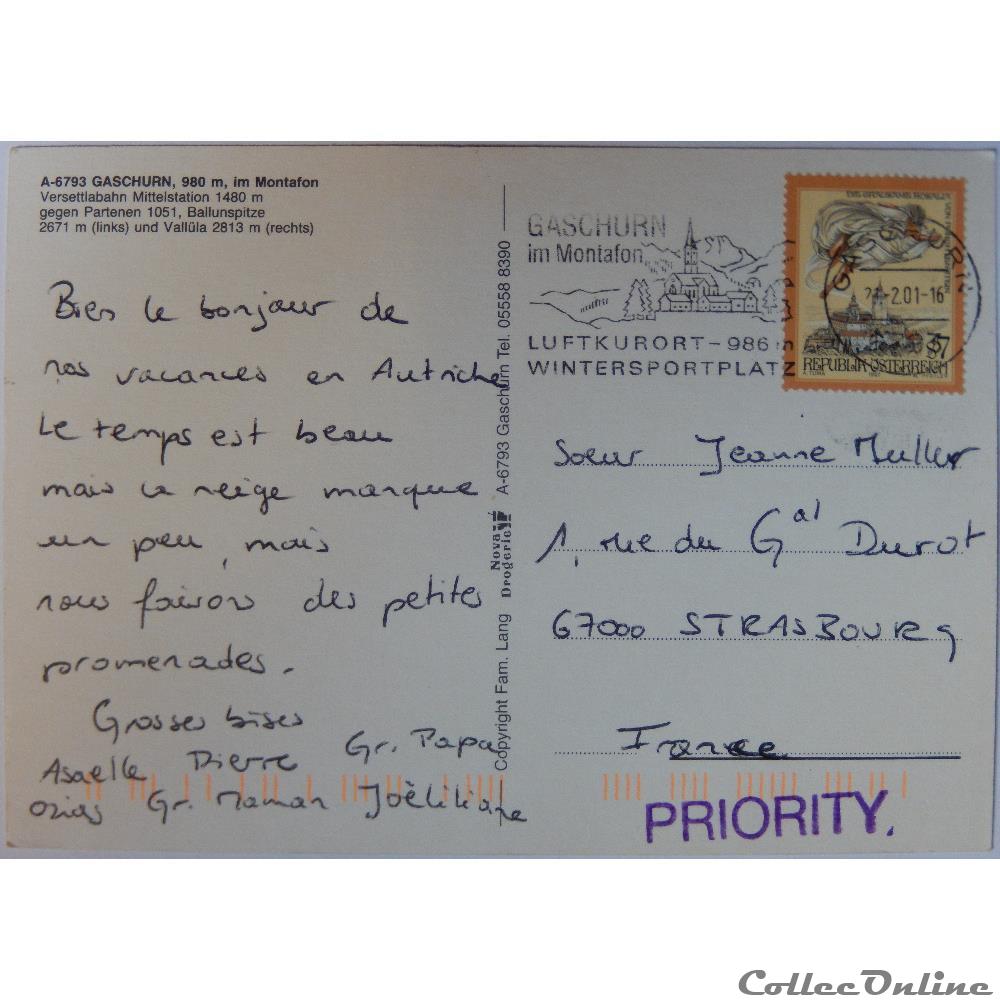 A-6793 GASCHURN, 980 m, im Montafon
Versettlabahn Mittelstation 1480 m
gegen Partenen 1051, Ballunspitze
2671 m (links) und Vallüla 2813 m (rechts)
Bien le bonjour de
nos vacances en Autriche
Le temps est beau
mais la neige manque
un peu, mais
nous faisons des petites
promenades.
Grosses bises
Asaelle Pierre Gr. Papa
Ozias Gr. Maman Joëliliane
Copyright Fam. Lang Nova Drogerie A-6793 Gaschurn Tel. 05558 8390
GASCHURN
im Montafon
LUFTKURORT-986 m
WINTERSPORTPLATZ
2.01-16
S7
REPUBLIK ÖSTERREICH
Soeur Jeanne Muller
1, rue du Gal Durot
67000 STRASBOURG
France
PRIORITY.
CollecOnline